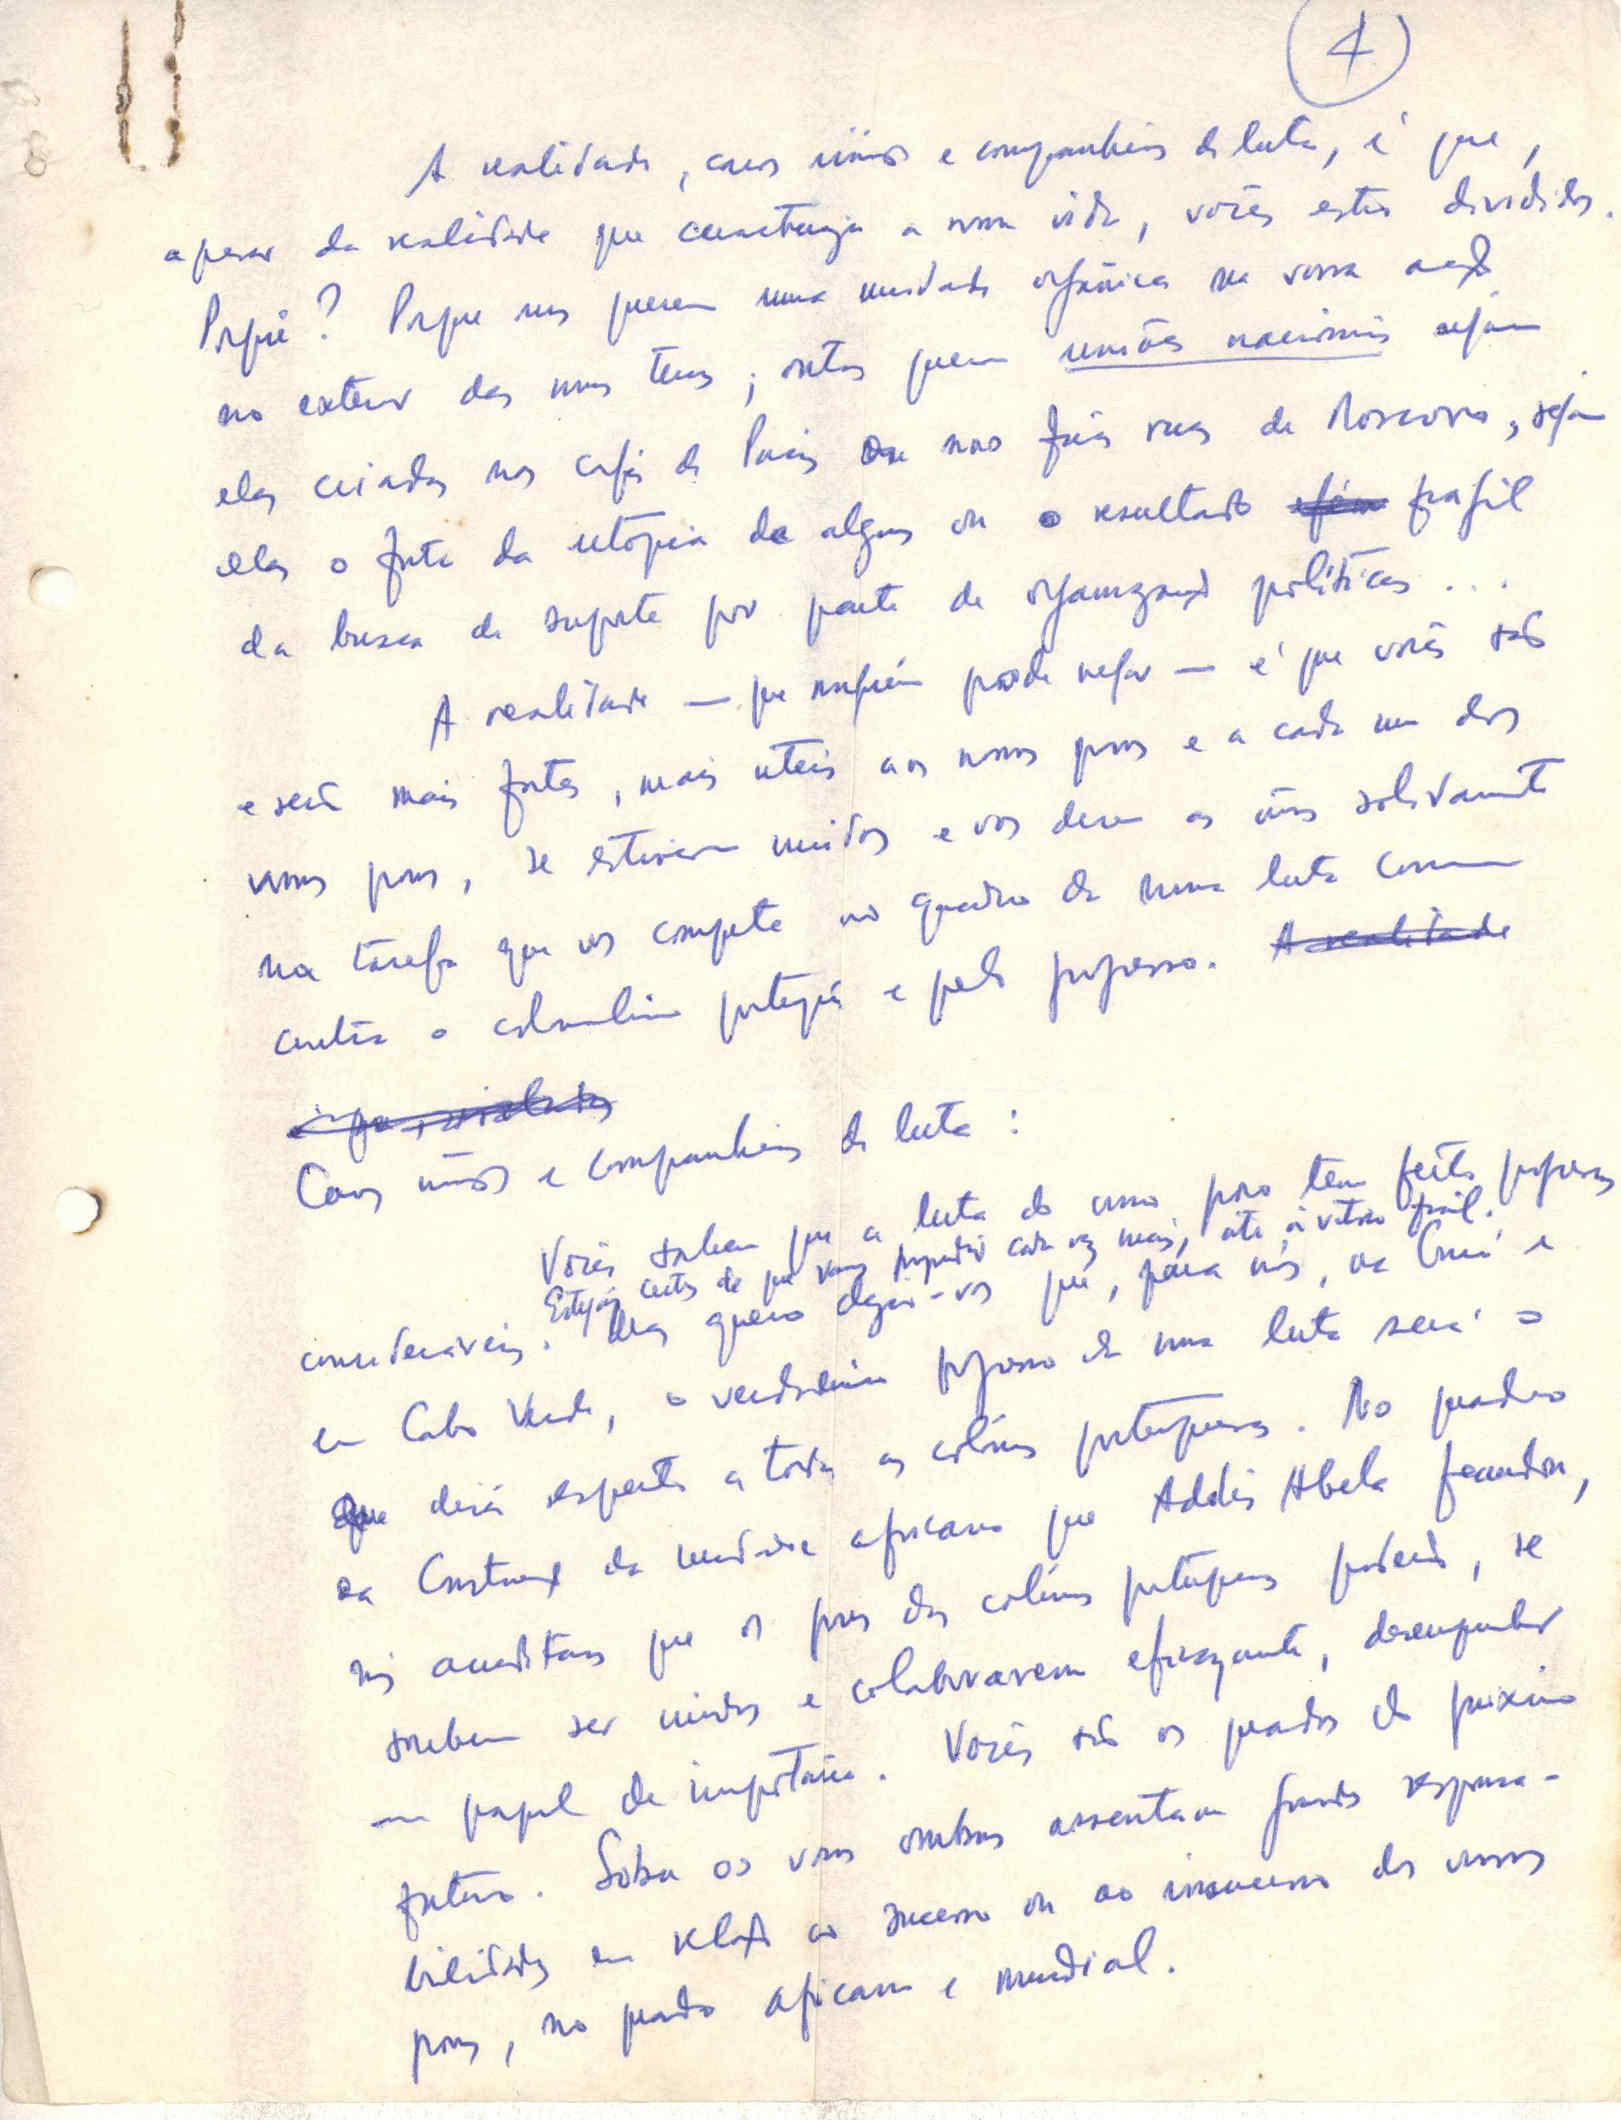 4
A realidade, caros irmãos e companheiros de luta, é que,
apesar da realidade que constrange a nossa vida, vocês estão divididos.
Porquê? Porque uns querem uma unidade orgânica na vossa acção
no exterior das nossas terras; outros querem uniões nacionais sejam
elas criadas nos cafés de Paris ou nas frias ruas de Moscovo, sejam
elas o fruto da utopia de alguns ou o resultado frágil
da busca de suporte por parte de organizações políticas...
A realidade — que ninguém pode negar — é que vocês são
e serão mais fortes, mais úteis aos nossos povos e a cada um dos
nossos povos, se estiverem unidos e vos derem as mãos solidamente
na tarefa que vos compete no quadro da nossa luta comum
contra o colonialismo português e pelo progresso. A realidade
é que,
Caros irmãos e companheiros de luta:
Vocês sabem que a luta do nosso povo tem feito progressos
Estejam certos de que vamos progredir cada vez mais, até à vitória final.
consideráveis. Mas quero dizer-vos que, para nós, na Guiné e
em Cabo Verde, o verdadeiro progresso da nossa luta será o
que dirá respeito a todas as colónias portuguesas. No quadro
da Construção da unidade africana que Addis Abeba fecundou,
nós acreditamos que os povos das colónias portuguesas poderão, se
souberem ser unidos e colaborarem eficazmente, desempenhar
um papel de importância. Vocês são os quadros do próximo
futuro. Sobre os vossos ombros assentam grandes responsa-
bilidades em relação ao sucesso ou ao insucesso dos nossos
povos, no quadro africano e mundial.